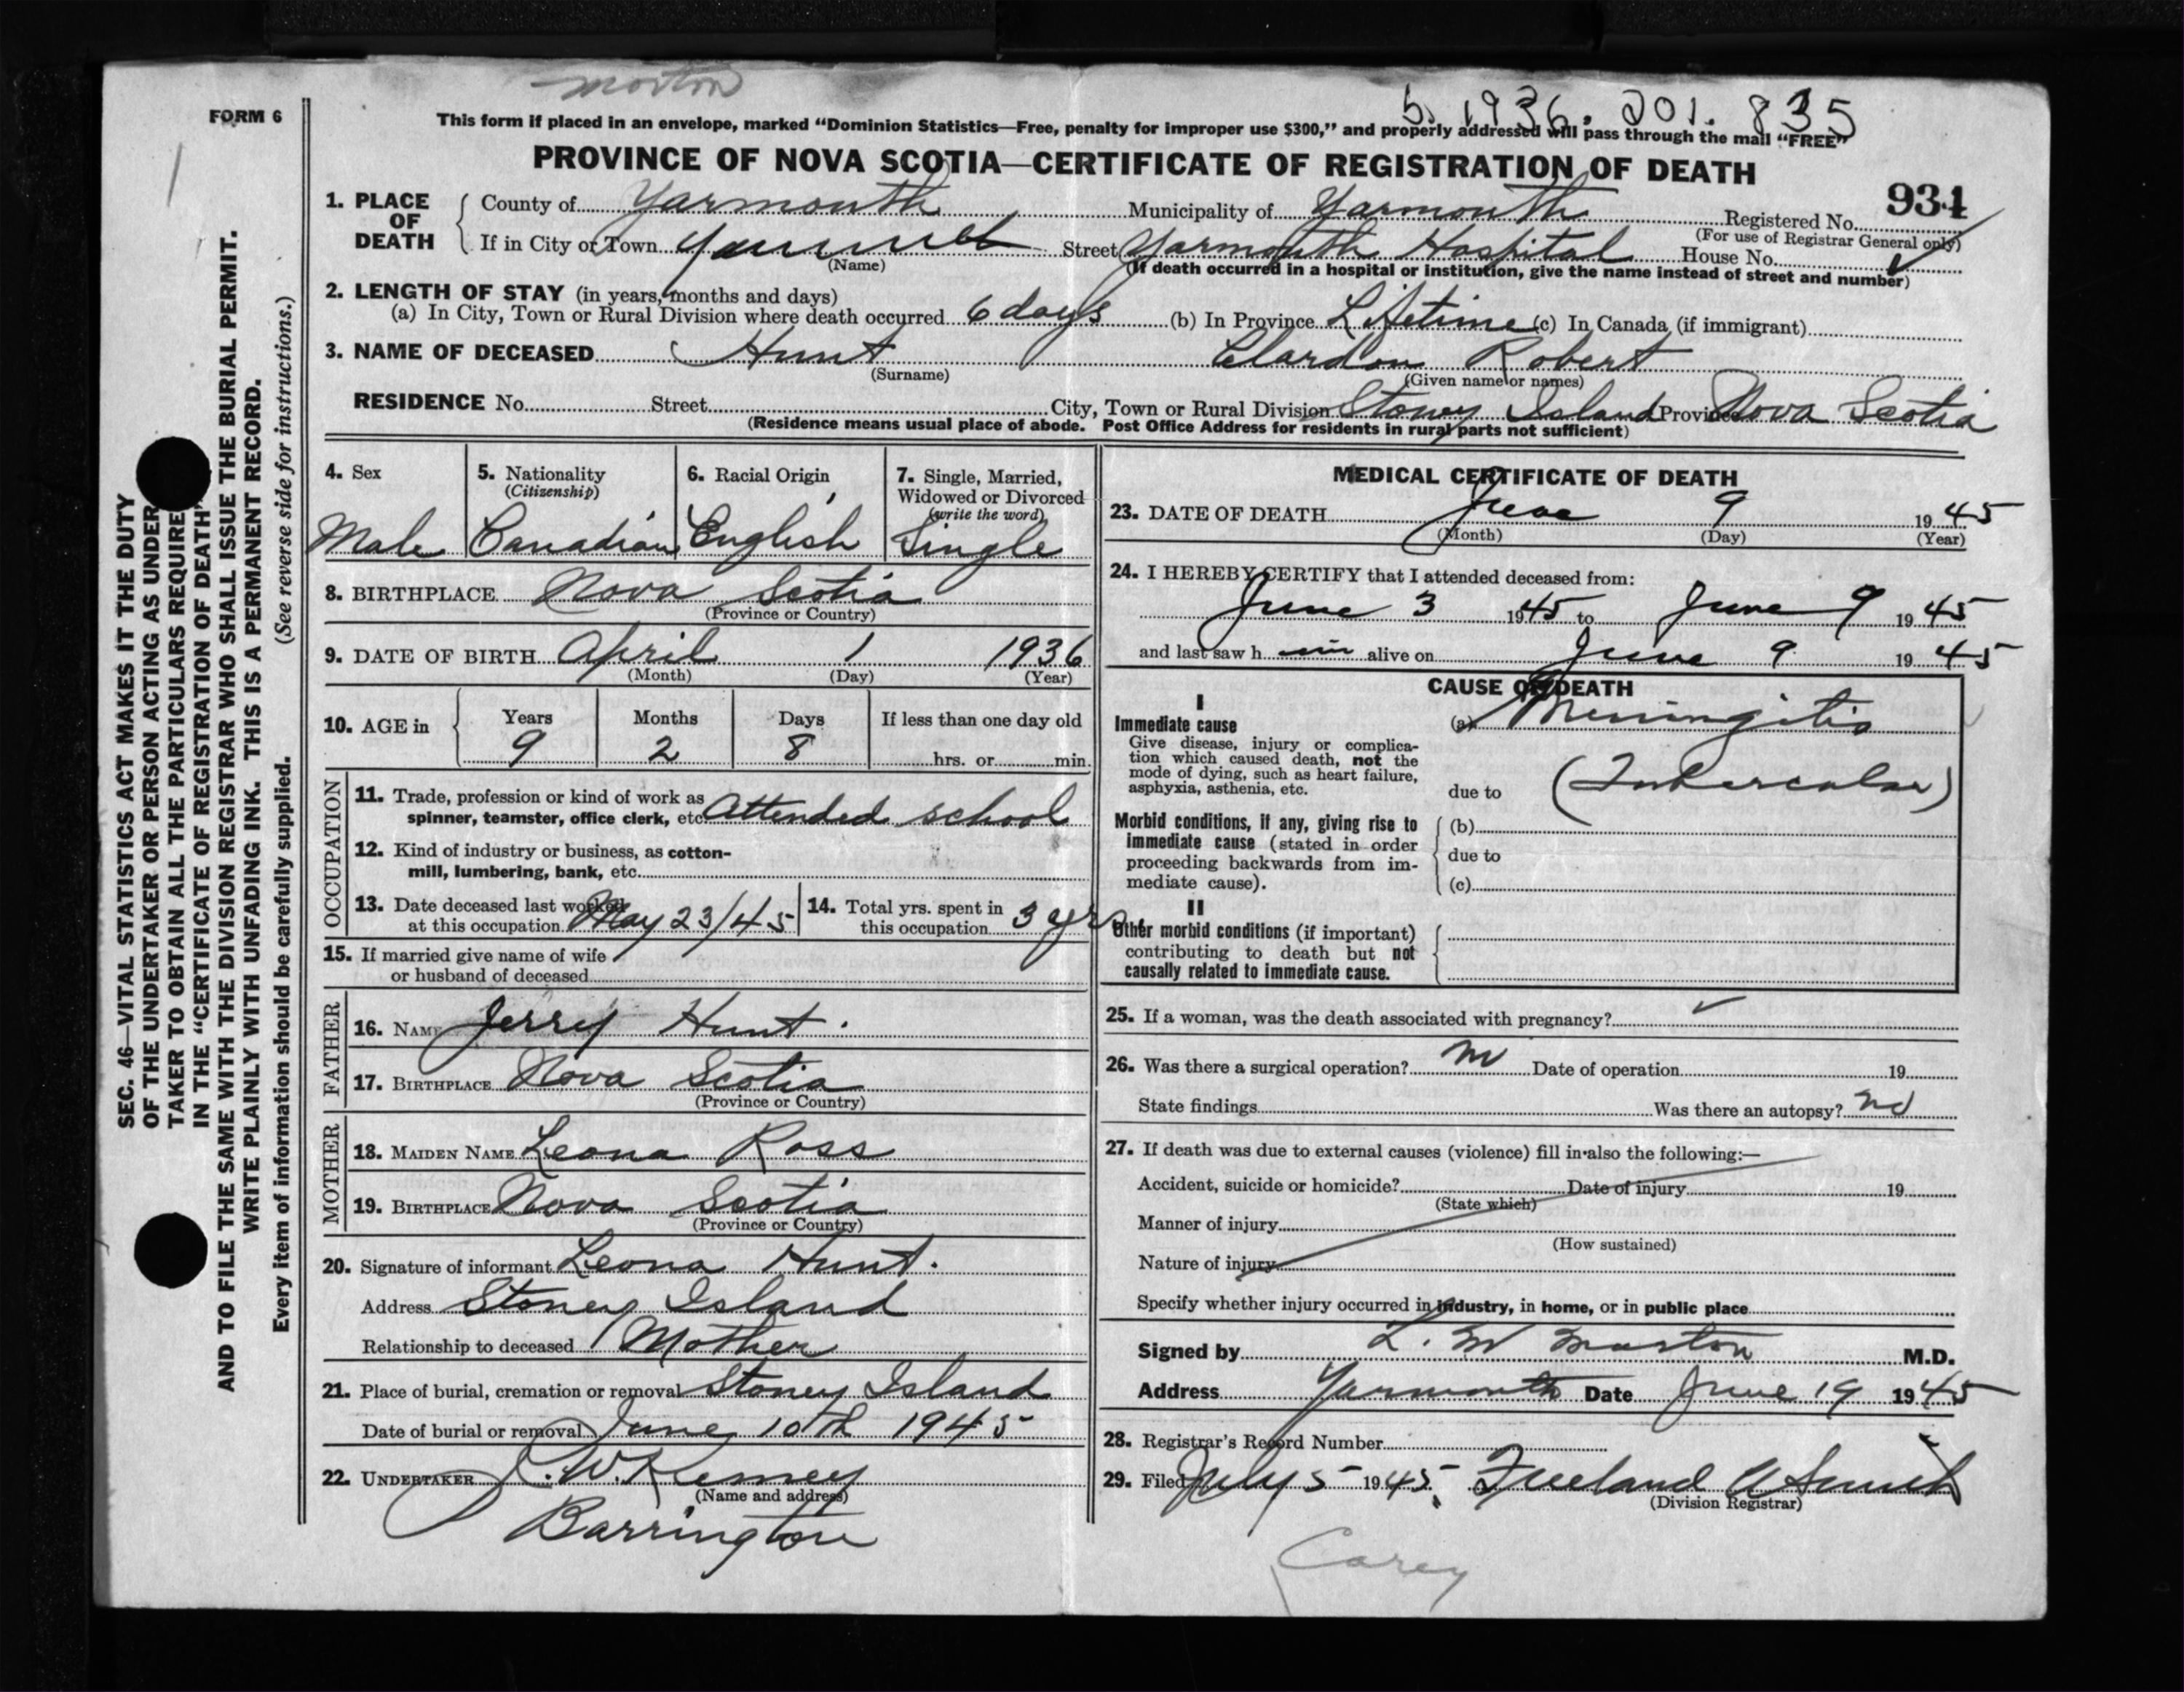 Morton
b. 1936. 201. 835
FORM 6
This form if placed in an envelope, marked "Dominion Statistics—Free, penalty for improper use $300," and properly addressed will pass through the mail "FREE"
PROVINCE OF NOVA SCOTIA—CERTIFICATE OF REGISTRATION OF DEATH
934
1. PLACE OF DEATH
County of Yarmouth Municipality of Yarmouth Registered No.
(For use of Registrar General only)
If in City or Town Yarmouth Street Yarmouth Hospital House No.
(Name) (If death occurred in a hospital or institution, give the name instead of street and number)
2. LENGTH OF STAY (in years, months and days)
(a) In City, Town or Rural Division where death occurred 6 days (b) In Province Lifetime (c) In Canada (if immigrant)
3. NAME OF DECEASED Hunt Robert
(Surname) (Given name or names)
RESIDENCE No. Street City, Town or Rural Division Stoney Island Province Nova Scotia
(Residence means usual place of abode. Post Office Address for residents in rural parts not sufficient)
4. Sex
Male
5. Nationality
(Citizenship)
Canadian
6. Racial Origin
English
7. Single, Married,
Widowed or Divorced
(write the word)
Single
8. BIRTHPLACE Nova Scotia
(Province or Country)
9. DATE OF BIRTH April 1 1936
(Month) (Day) (Year)
10. AGE in Years Months Days If less than one day old
9 2 8 hrs. or min.
OCCUPATION
11. Trade, profession or kind of work as
spinner, teamster, office clerk, etc. Attended school
12. Kind of industry or business, as cotton-
mill, lumbering, bank, etc.
13. Date deceased last worked
at this occupation May 23/45
14. Total yrs. spent in
this occupation 3 yrs
15. If married give name of wife
or husband of deceased
FATHER
16. NAME Jerry Hunt.
17. BIRTHPLACE Nova Scotia
(Province or Country)
MOTHER
18. MAIDEN NAME Leona Ross
19. BIRTHPLACE Nova Scotia
(Province or Country)
20. Signature of informant Leona Hunt.
Address Stoney Island
Relationship to deceased Mother
21. Place of burial, cremation or removal Stoney Island
Date of burial or removal June 10th 1945
22. UNDERTAKER W. Kenney
(Name and address)
Barrington
MEDICAL CERTIFICATE OF DEATH
23. DATE OF DEATH June 9 1945
(Month) (Day) (Year)
24. I HEREBY CERTIFY that I attended deceased from:
June 3 1945 to June 9 1945
and last saw h im alive on June 9 1945
CAUSE OF DEATH
I
Immediate cause
Give disease, injury or complica-
tion which caused death, not the
mode of dying, such as heart failure,
asphyxia, asthenia, etc.
(a) Meningitis
due to (Tubercular)
Morbid conditions, if any, giving rise to
immediate cause (stated in order
proceeding backwards from im-
mediate cause).
(b)
due to
(c)
II
Other morbid conditions (if important)
contributing to death but not
causally related to immediate cause.
25. If a woman, was the death associated with pregnancy?
26. Was there a surgical operation? no Date of operation 19
State findings Was there an autopsy? no
27. If death was due to external causes (violence) fill in also the following:—
Accident, suicide or homicide? Date of injury 19
(State which)
Manner of injury
(How sustained)
Nature of injury
Specify whether injury occurred in industry, in home, or in public place
Signed by L. M Morton M.D.
Address Yarmouth Date June 19 1945
28. Registrar's Record Number
29. Filed July 5 1945. Freeland A Smith
(Division Registrar)
Carey
SEC. 46—VITAL STATISTICS ACT MAKES IT THE DUTY
OF THE UNDERTAKER OR PERSON ACTING AS UNDER
TAKER TO OBTAIN ALL THE PARTICULARS REQUIRE
IN THE "CERTIFICATE OF REGISTRATION OF DEATH"
AND TO FILE THE SAME WITH THE DIVISION REGISTRAR WHO SHALL ISSUE THE BURIAL PERMIT.
WRITE PLAINLY WITH UNFADING INK. THIS IS A PERMANENT RECORD.
Every item of information should be carefully supplied. (See reverse side for instructions.)